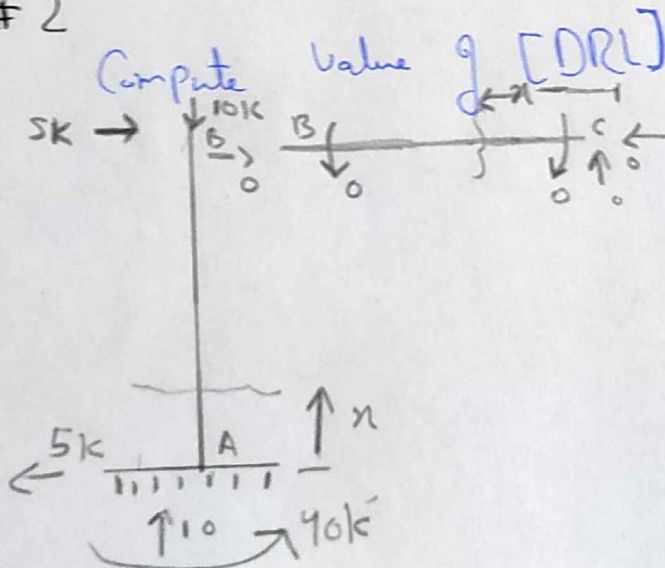 # 2
Compute value of [DRL]
10K
5K B B x C
0 0 0 0 0
x
5K A
10 40k'